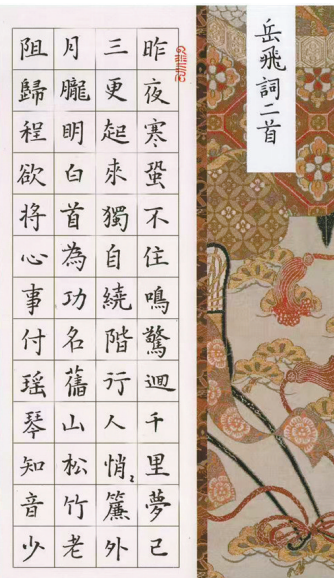 岳飛詞二首
昨夜寒蛩不住鳴驚迴千里夢已
三更起來獨自繞階行人悄〻簾外
月朧明白首為功名舊山松竹老
阻歸程欲將心事付瑶琴知音少